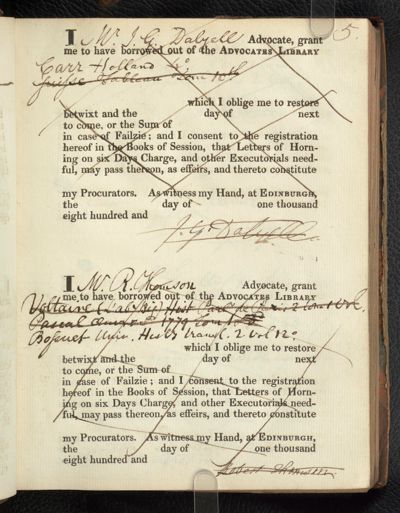 5.
I Mr. J. G. Dalyell Advocate, grant
me to have borrowed out of the ADVOCATES LIBRARY
Carr Holland 4o.
Suisse Tableau Tom 10th
which I oblige me to restore
betwixt and the day of next
to come, or the Sum of
in case of Failzie; and I consent to the registration
hereof in the Books of Session, that Letters of Horn-
ing on six Days Charge, and other Executorials need-
ful, may pass thereon, as effeirs, and thereto constitute
my Procurators. As witness my Hand, at EDINBURGH,
the day of one thousand
eight hundred and
J. G. Dalyell
I Mr. R. Thomson Advocate, grant
me to have borrowed out of the ADVOCATES LIBRARY
Voltaire Hist Parl de Paris 2 tom 1 Vol.
Pascal 1779 tom
Bossuet Univ. Hist by transl. 2 Vol 12o
which I oblige me to restore
betwixt and the day of next
to come, or the Sum of
in case of Failzie; and I consent to the registration
hereof in the Books of Session, that Letters of Horn-
ing on six Days Charge, and other Executorials need-
ful, may pass thereon, as effeirs, and thereto constitute
my Procurators. As witness my Hand, at EDINBURGH,
the day of one thousand
eight hundred and
Robert Thomson